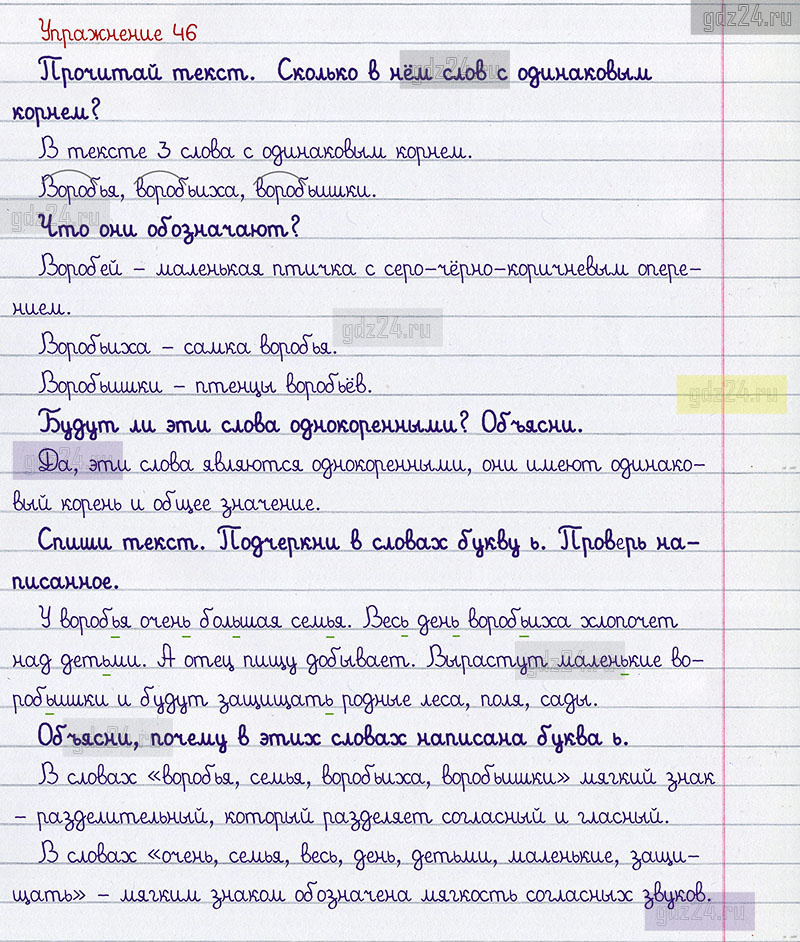 gdz24.ru
Упражнение 46
Прочитай текст. Сколько в нём слов с одинаковым
gdz24.ru
корнем?
В тексте 3 слова с одинаковым корнем.
Воробья, воробьиха, воробьишки.
gdz24.ru
Что они обозначают?
Воробей – маленькая птичка с серо-чёрно-коричневым опере-
нием.
gdz24.ru
Воробьиха – самка воробья.
Воробьишки – птенцы воробьёв.
gdz24.ru
Будут ли эти слова однокоренными? Объясни.
Да, эти слова являются однокоренными, они имеют одинако-
gdz24.ru
вый корень и общее значение.
Спиши текст. Подчеркни в словах букву ь. Проверь на-
писанное.
У воробья очень большая семья. Весь день воробьиха хлопочет
над детьми. А отец пищу добывает. Вырастут маленькие во-
gdz24.ru
робьишки и будут защищать родные леса, поля, сады.
Объясни, почему в этих словах написана буква ь.
gdz24.ru
В словах «воробья, семья, воробьиха, воробьишки» мягкий знак
– разделительный, который разделяет согласный и гласный.
В словах «очень, семья, весь, день, детьми, маленькие, защи-
щать» – мягким знаком обозначена мягкость согласных звуков.
gdz24.ru